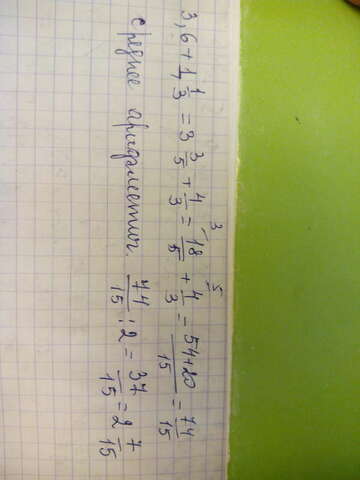 3,6 + 1 1/3 = 3 3/5 + 4/3 = 18/5 (3 + 4/3 (5 = (54+20)/15 = 74/15
среднее арифметич. 74/15 : 2 = 37/15 = 2 7/15